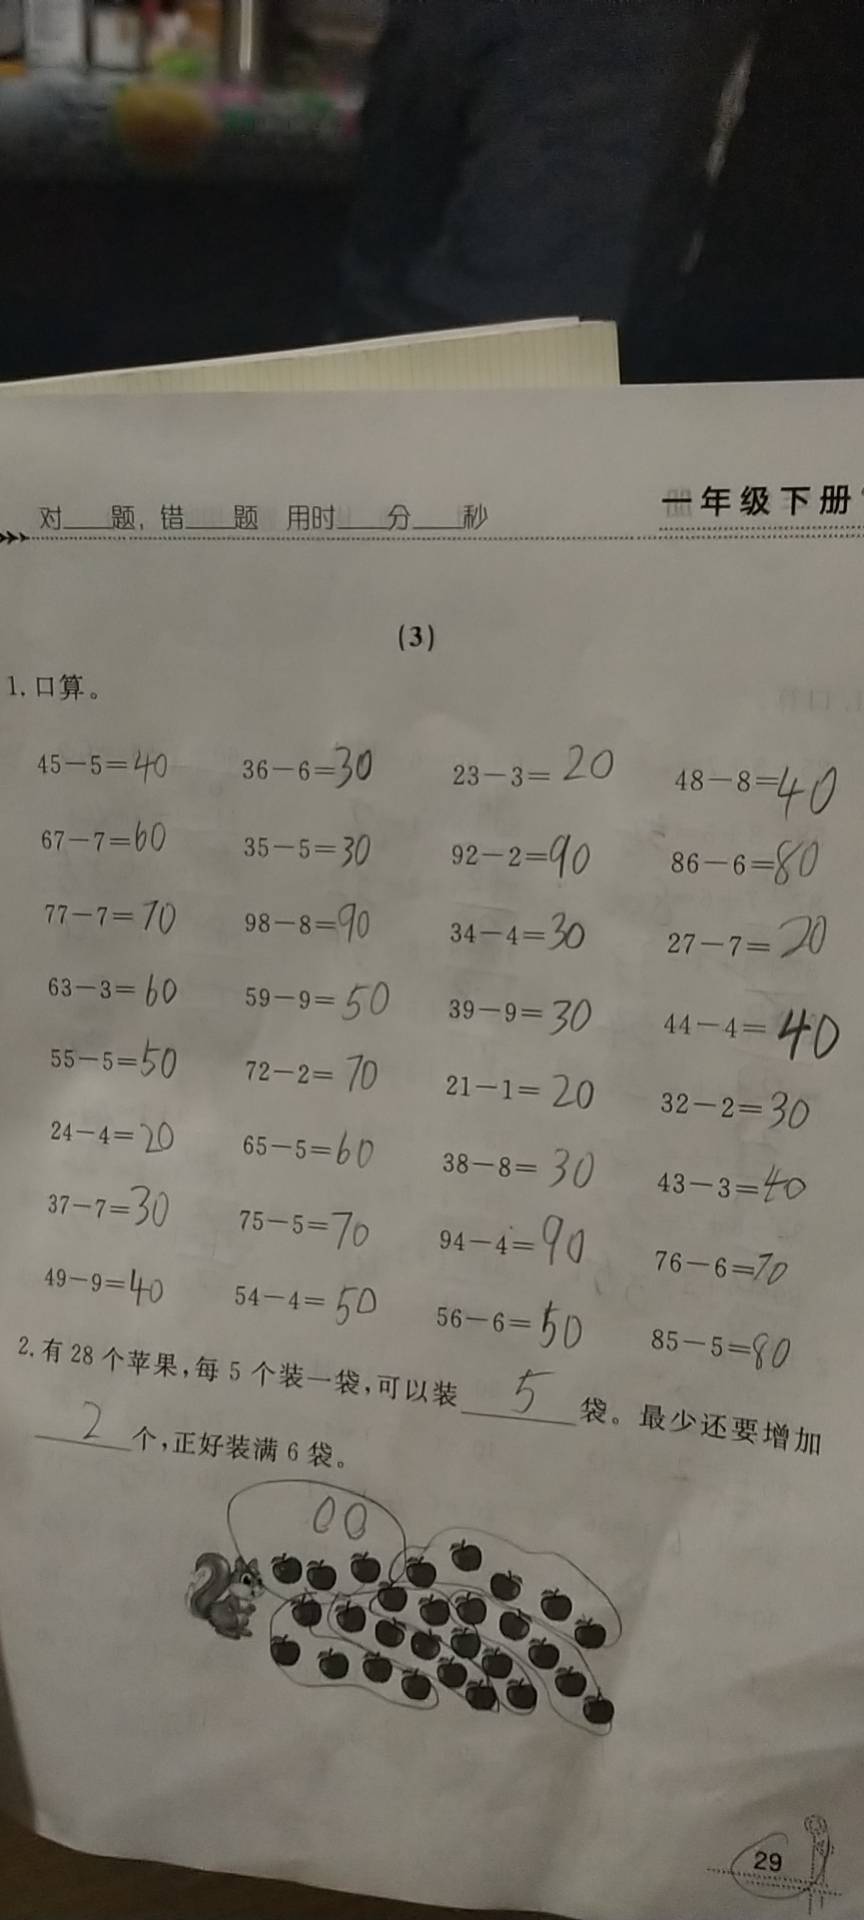 对____题，错____题 用时____分____秒 一年级下册
(3)
1. 口算。
45－5＝40 36－6＝30 23－3＝20 48－8＝40
67－7＝60 35－5＝30 92－2＝90 86－6＝80
77－7＝70 98－8＝90 34－4＝30 27－7＝20
63－3＝60 59－9＝50 39－9＝30 44－4＝40
55－5＝50 72－2＝70 21－1＝20 32－2＝30
24－4＝20 65－5＝60 38－8＝30 43－3＝40
37－7＝30 75－5＝70 94－4＝90 76－6＝70
49－9＝40 54－4＝50 56－6＝50 85－5＝80
2. 有 28 个苹果，每 5 个装一袋，可以装 5 袋。最少还要增加
2 个，正好装满 6 袋。
29